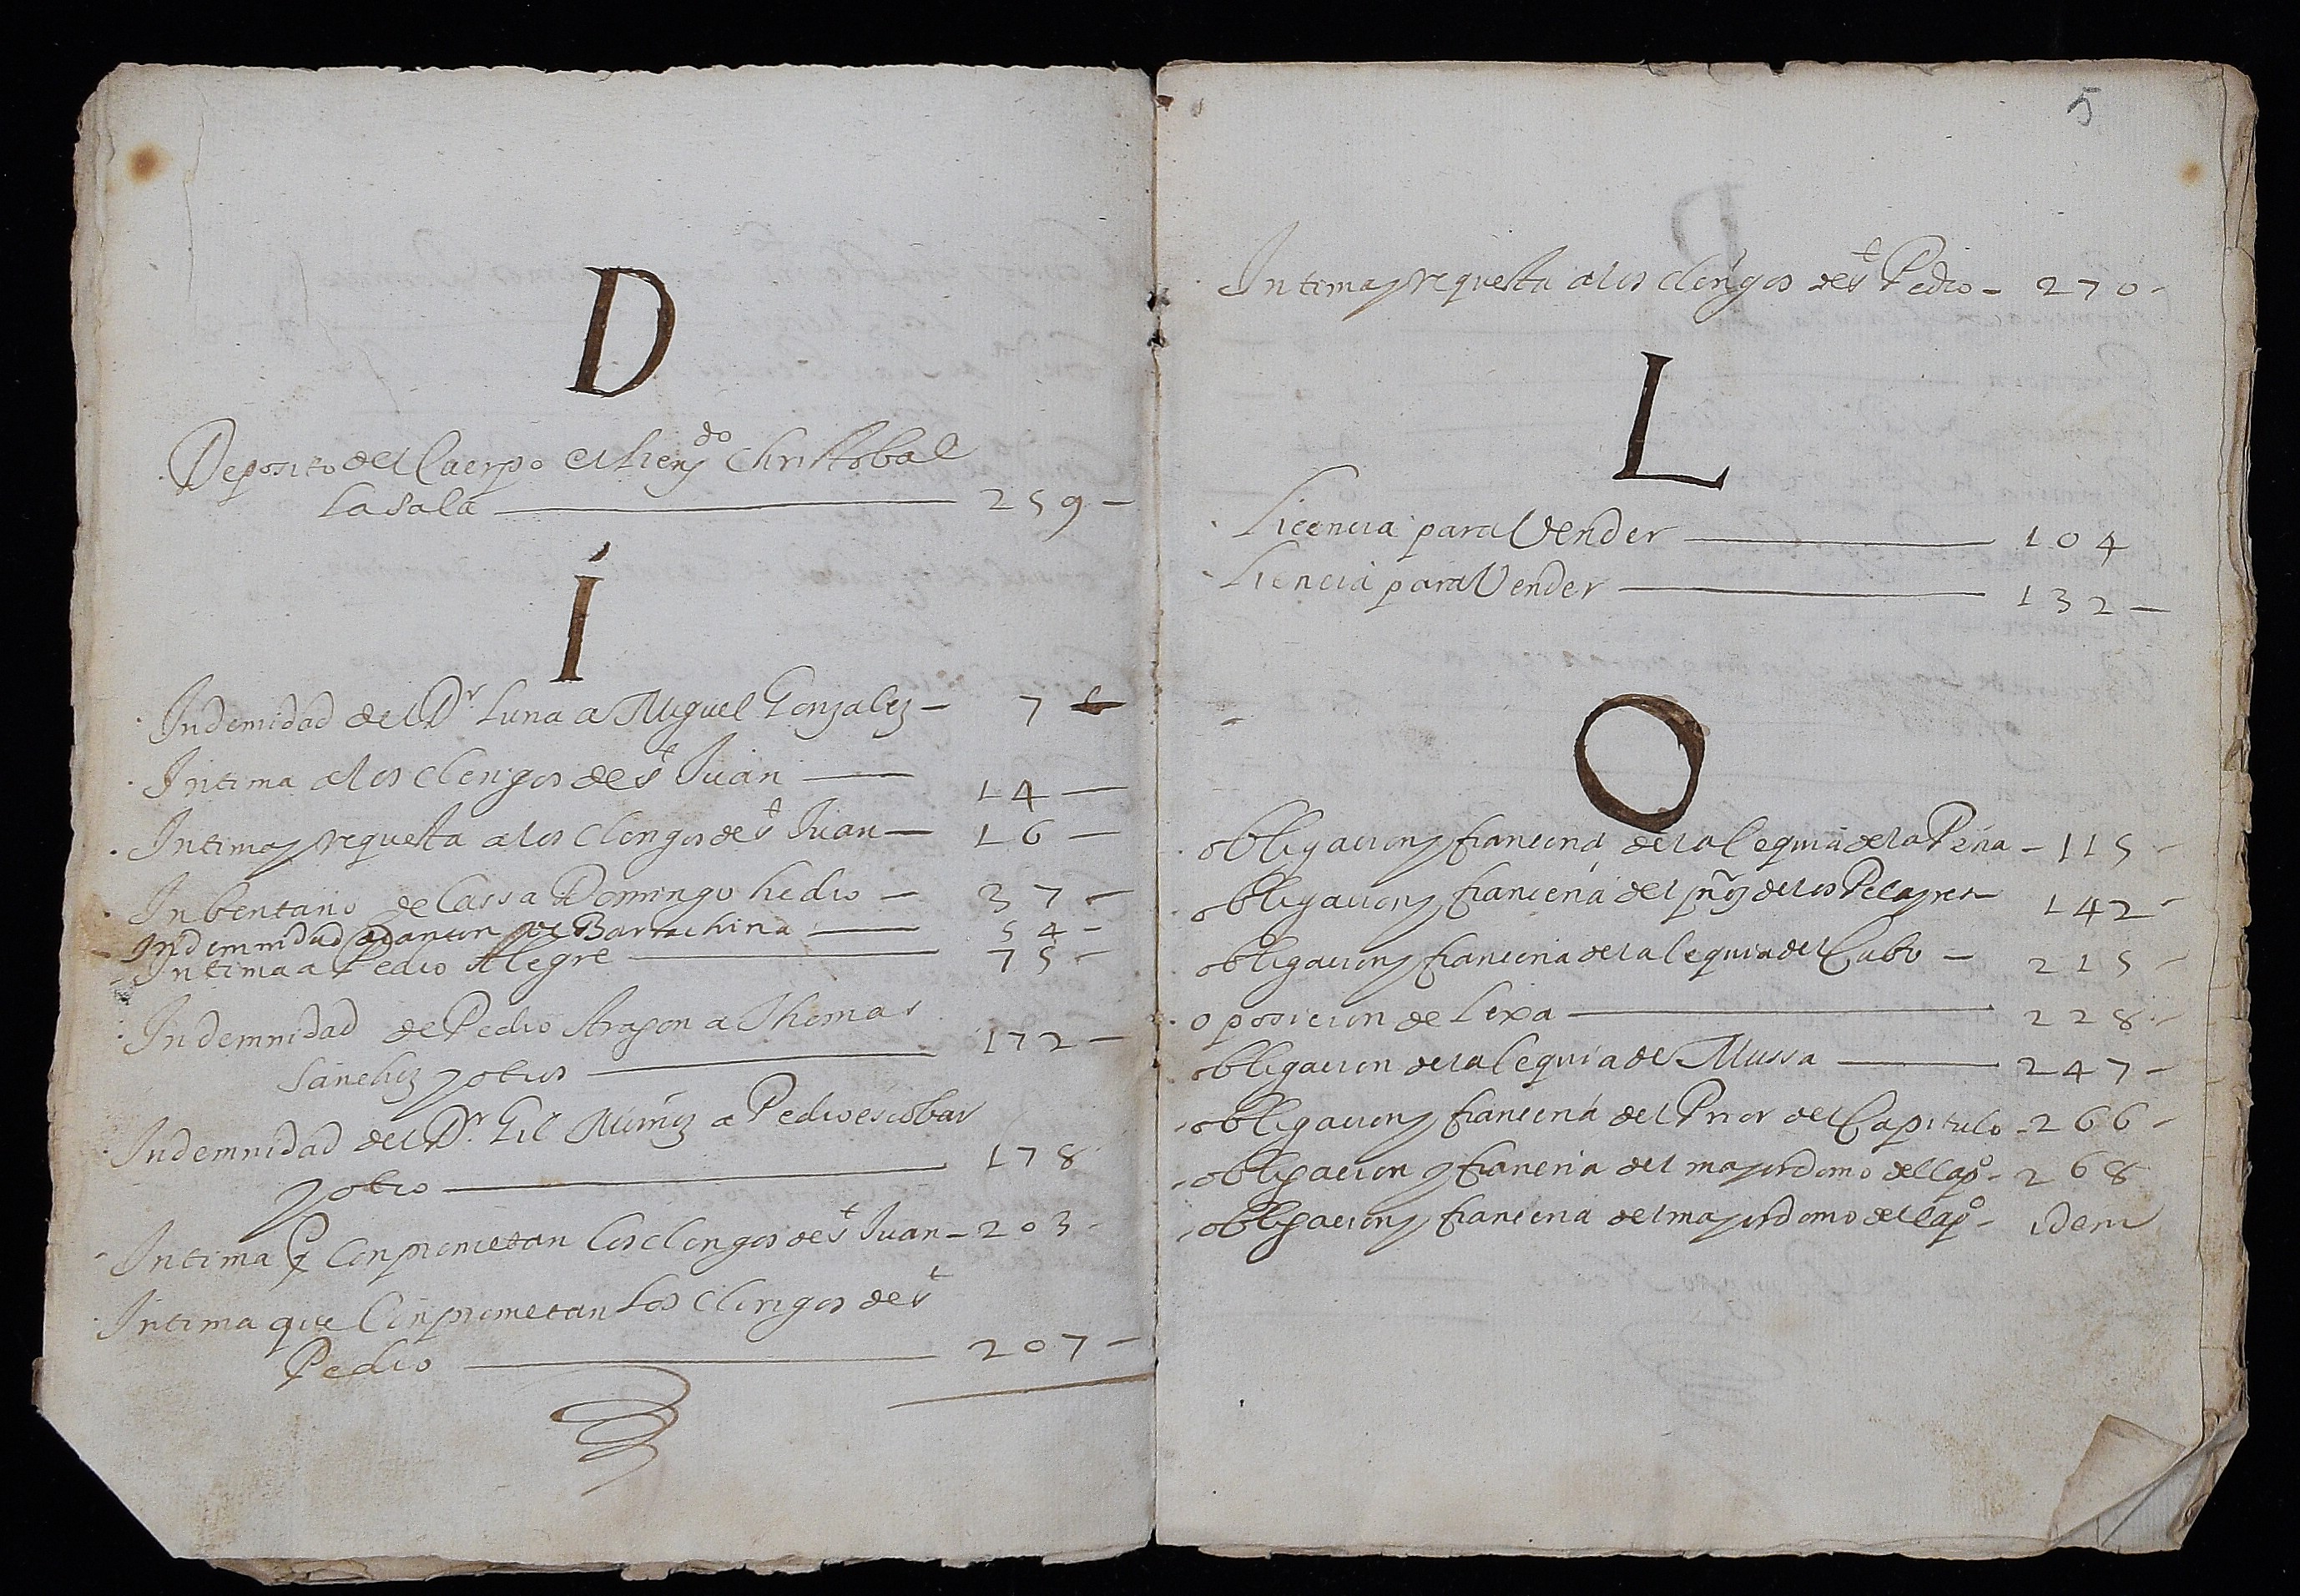 D
Deposito del Cuerpo el licen.do Christobal
La Sala 259
Í
Indemidad del D.r Luna a Miguel Gonzalez 7
Intima a los clerigos de s.t Juan 14
Intima y requesta a los clerigos de s.t Juan 16
Inbentario de Cassa Domingo 37
Indemnidad de Barrachina 54
Intima a Pedro Alegre 75
Indemnidad de Pedro Aragon a Thomas
Sanchez y otros 172
Indemnidad del D.r Gil Nuñez a Pedro escobar
y otro 178
Intima q Conprometan los clerigos de s.t Juan 203
Intima que Conprometan Los Clerigos de s.t
Pedro 207
5
Intima y requesta a los clerigos de s.t Pedro 270
L
Licencia para Vender 104
Liencia para Vender 132
O
obligacion y fianceria de la cequia de la Peña 115
obligacion y fianceria del de los Pelayres 142
obligacion y fianceria de la cequia del Cubo 215
oposicion de Lixa 228
obligacion de la cequia de Mussa 247
obligacion y fianceria del Prior del Capitulo 266
obligacion y fianceria del mayordomo del cap.o 268
obligacion y fianceria del mayordomo del cap.o idem